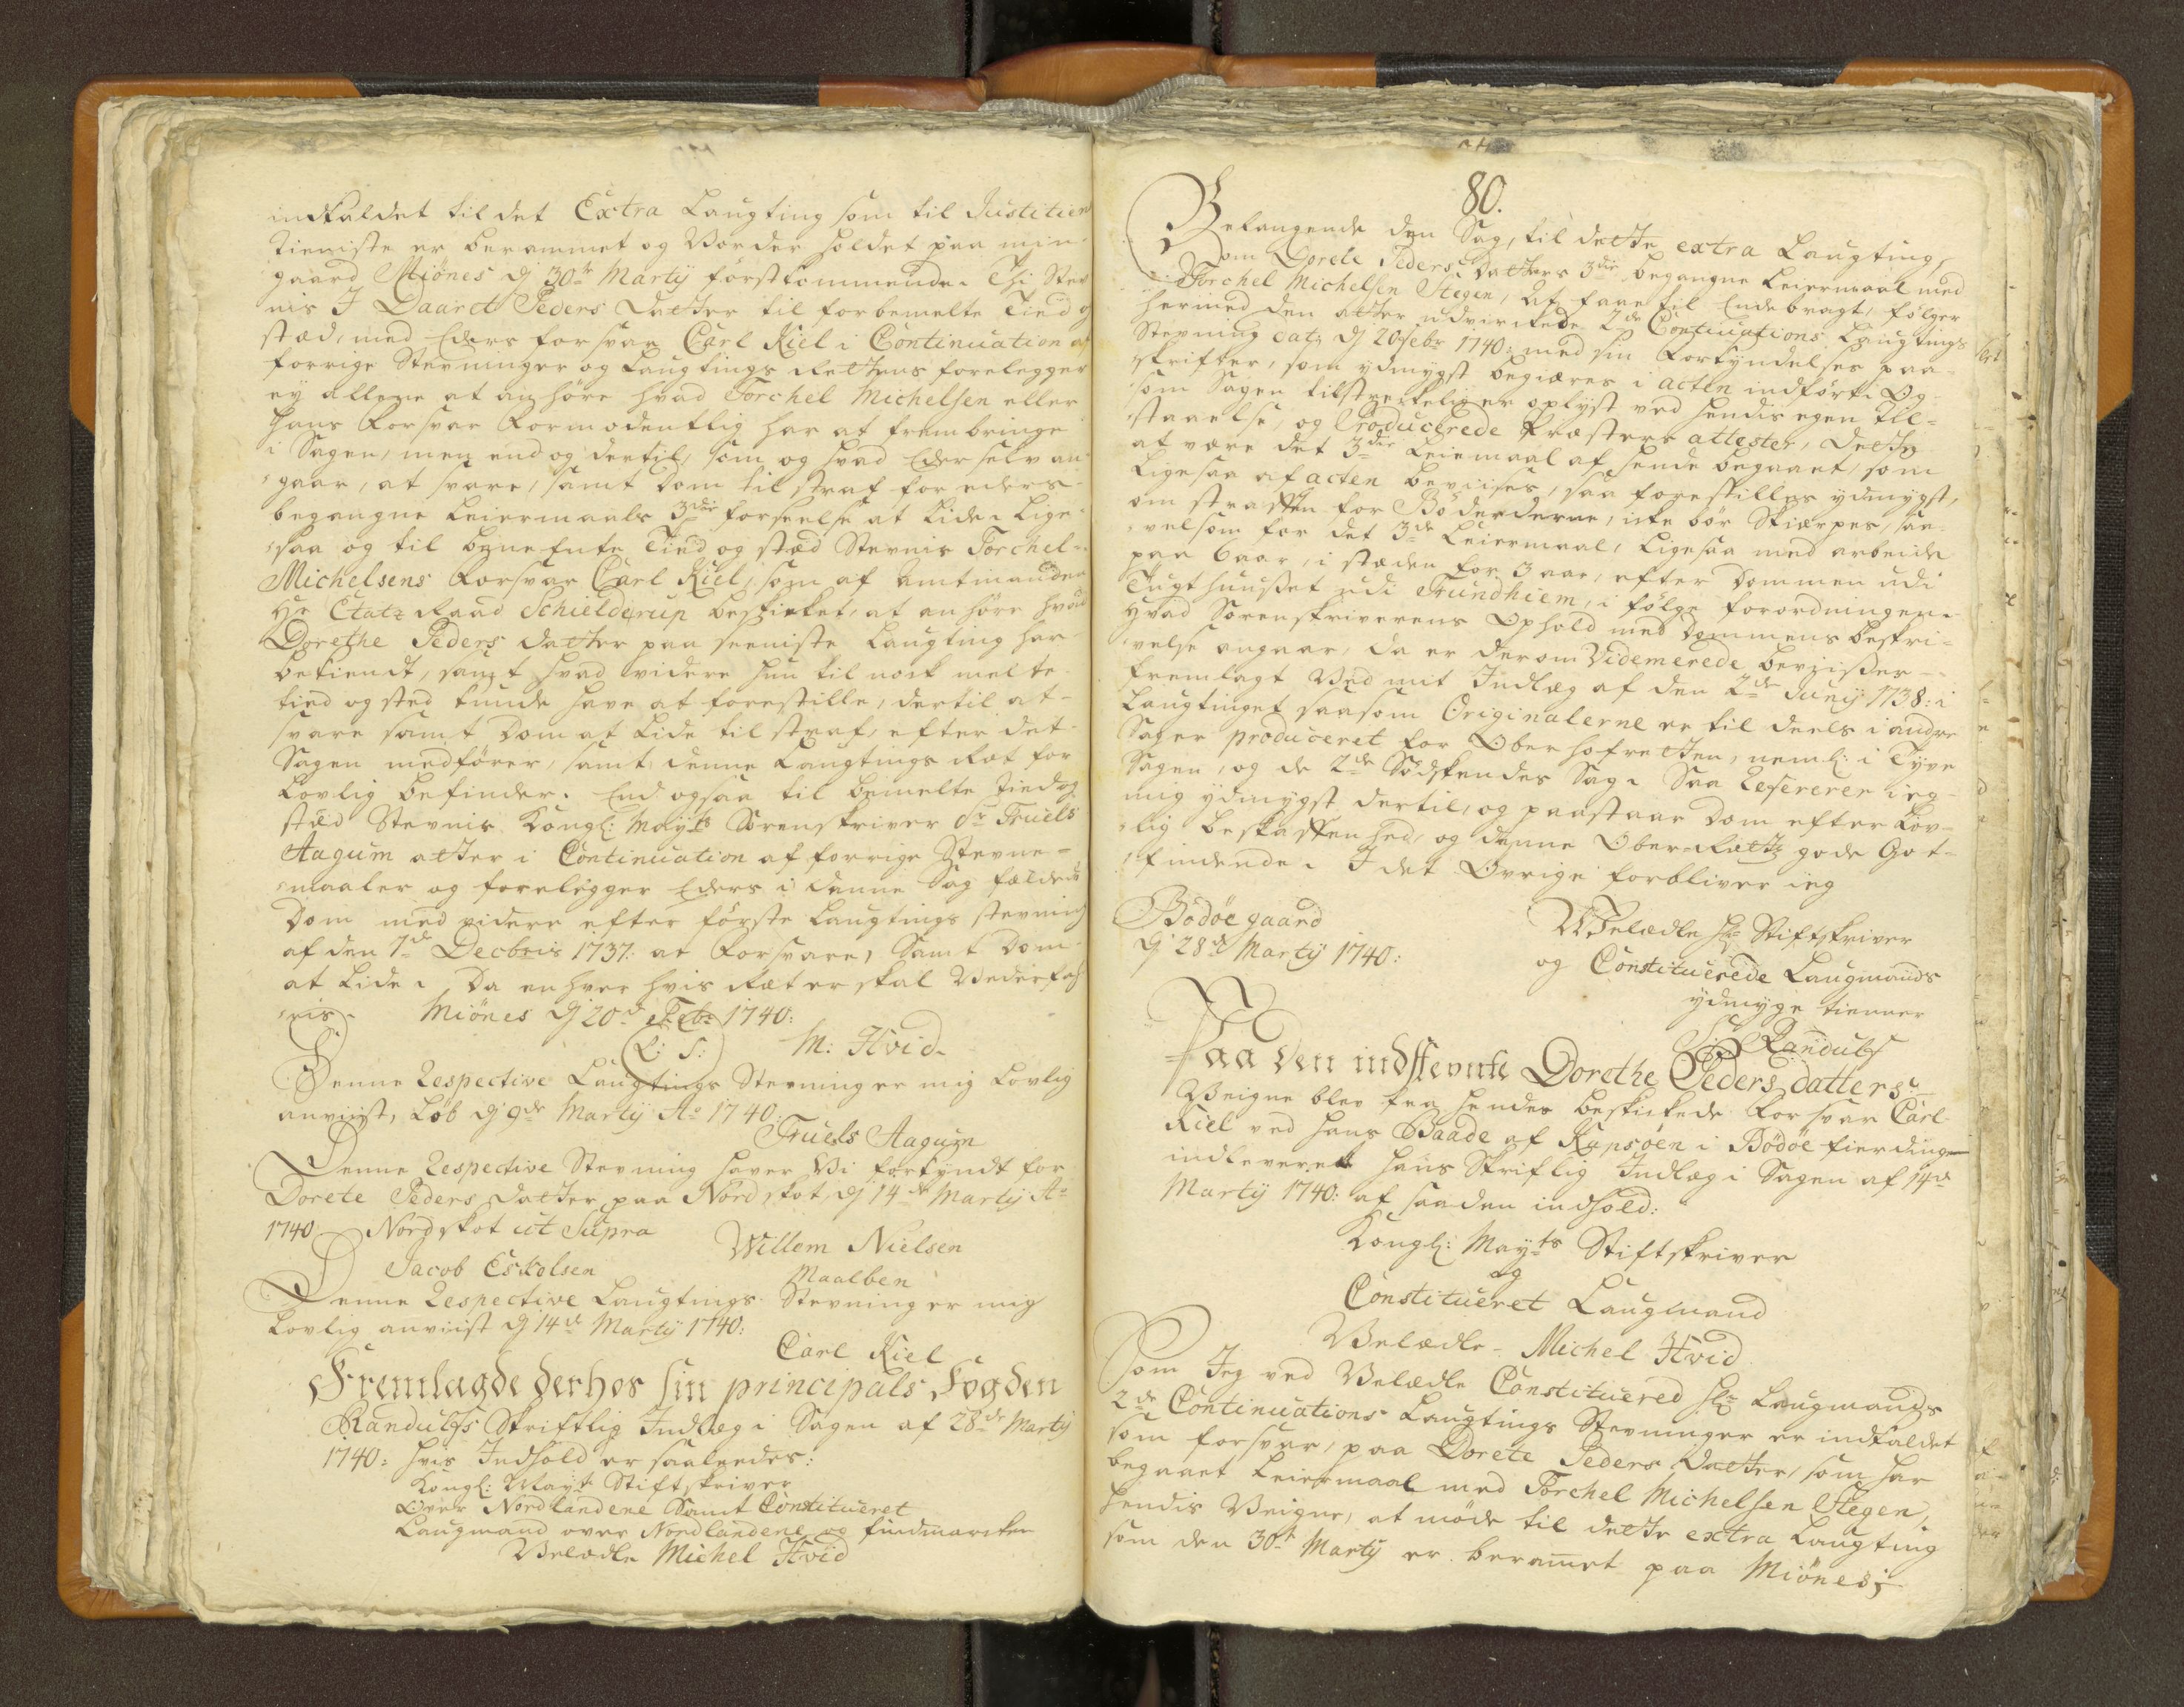 indkaldet til det Extra Laugting som til Justitien
tieniste er berammet og Vorder holdet paa min
gaard Miönes dj 30te Martÿ förstkommende. Thi Stev
nis I Daaret Peders datter til forbemelte Tied og
stæd, med Eders forsvar Carl Kiel i Continuation af
forrige Stevninger og Laugtings Rettens forelegger
eÿ allene at anhöre hvad Torchel Michelsen eller
hans Forsvar Formodentlig har at frembringe
i Sagen, men endog dertil, som og hvad Eder selv an-
gaar, at svare, samt Dom til straf for eders
begangne Leiermaals 3die forseelse at Lide. Lige-
saa og til benefnte Tied og stæd Stevnis Torchel
Michelsens Forsvar Carl Kiel, som af Amtmanden
Hr Etatz Raad Schielderup beskicket, at anhöre hvad
Dorethe Peders datter paa seeniste Laugting har
bekiendt, samt hvad videre hun til nock melte
tied og sted kunde have at forestille, dertil at
svare samt Dom at Lide til straf, efter det
Sagen medförer, samt denne Laugtings Ret for
Lovlig befinder. End ogsaa til bemelte Tied og
stæd Stevnis Kongl: Maÿts Sorenskriver Sr Truels
Aagum atter i Continuation af forrige Stevne-
maaler og forelegger Eders i denne Sag fældede
Dom med videre efter förste Laugtings stevning
af den 7de Decbris 1737. at Forsvare, Samt Dom
at Lide. Da enhver hvis Ret er skal Vederfah
ris. Miönes dj 20de Febr 1740:
L: S: M: Hvid.
Denne Respective Laugtings Stevning er mig Lovlig
anviist, Löb dj 9de Martÿ Ao 1740.
Truels Aagum
Denne Respective Stevning haver Vi forkÿndt for
Dorete Peders datter paa Nordskot, dj 14de Martÿ Ao
1740 Nordskot ut Supra
Willom Nielsen
Jacob Eskolsen Maalben
Denne Respective Laugtings Stevning er mig
Lovlig anviist dj 14de Martÿ 1740:
Carl Kiel
Fremlagde derhos sin principals Fogden
Randulfs Skriftlig Indlæg i Sagen af 28de Martÿ
1740: hvis Indhold er saaleedes:
Kongl: Maÿts Stiftskriver
Over Nordlandene Samt Constitueret
Laugmand over Nordlandene og findmarcken
Velædle Michel Hvid
80.
Belangende den Sag, til dette extra Laugting,
om Dorete Peders Datters 3die begangne Leiermaal med
Torchel Michelsen Stegen, at faae til Ende bragt, fölger
hermed den atter udvirckede 2de Continuations Laugtings
Stevning dat: dj 20 Febr 1740: med sin Forkÿndelses paa-
skrifter, som ÿdmÿgst begiæres i acten indfört. Og
som Sagen tilstreckelig er oplÿst ved hendis egen Til-
staaelse, og Producerede Præsters attester, dette
at være det 3die Leiemaal af hende begaaet, som
Ligesaa af acten beviises, saa forestilles ÿdmÿgst,
om straffen for Böderderne, icke bör Skiærpes, saa-
velsom for det 3de Leiermaal, Ligesaa med arbeide
paa 6 aar, i stæden for 3 aar, efter Dommen udi
Tugthuusset udi Trundhiem, i fölge forordningen.
Hvad Sorenskriverens Ophold med Dommens beskri-
velse angaar, da er derom Videmerede beviisser
fremlagt Ved mit Indlæg af den 2de Junÿ 1738: i
Laugtinget saasom Originalerne er til deels i andre
Sager produceret for Oberhofretten, neml: i Tÿve
Sagen, og de 2de Södskendes Sag. Saa Refererer ieg
mig ÿdmÿgst dertil, og paastaar Dom efter Lov-
lig beskaffenhed, og denne Ober-Rettz gode Got-
findende. I det Ovrige forbliver ieg
Bodöegaard
dj 28de Martÿ 1740:
Velædle Hr Stiftskriver
og Constituerede Laugmands
ÿdmÿge tienner
S: Randulf
Paa den indstevnte Dorethe Peders datters
Veigne blev fra hendes beskickede Forsvar Carl
Kiel ved hans Baade af Kapsöen i Bödöe fierding
indleveret hans Skriftlig Indlæg i Sagen af 14de
Martÿ 1740: af saaden indhold:
Kongl: Maÿts Stiftskriver
og
Constitueret Laugmand
Velædle. Michel Hvid
Som Jeg ved Velædle Constituered Hr Laugmands
2de Continuations Laugtings Stevninger er indkaldet
som forsvar, paa Dorete Peders Datter, som har
begaaet Leiermaal med Torchel Michelsen Stegen,
hendis Veigne, at möde til dette extra Laugting
som den 30te Martÿ er beramet paa Miönes;